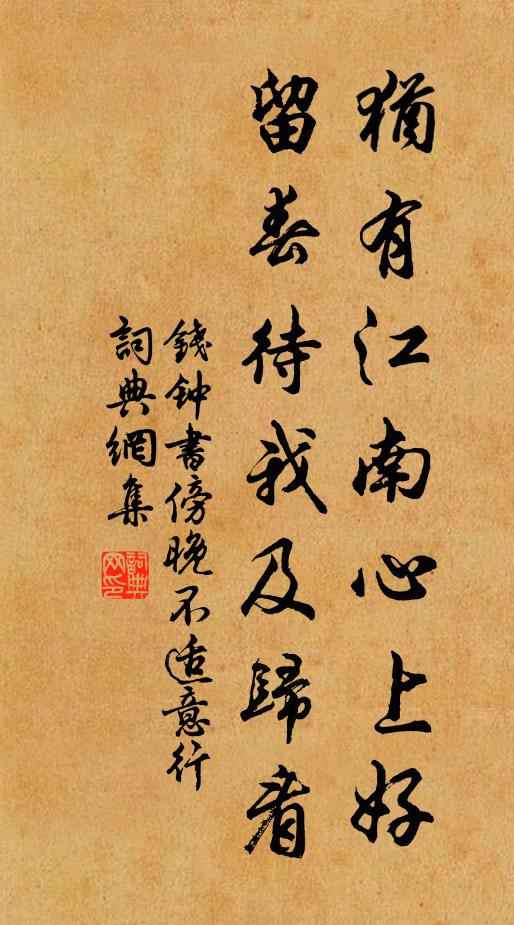 猶有江南心上好
留春待我及歸看
錢钟書傍晚不适意行
詞典網集
詞典網印